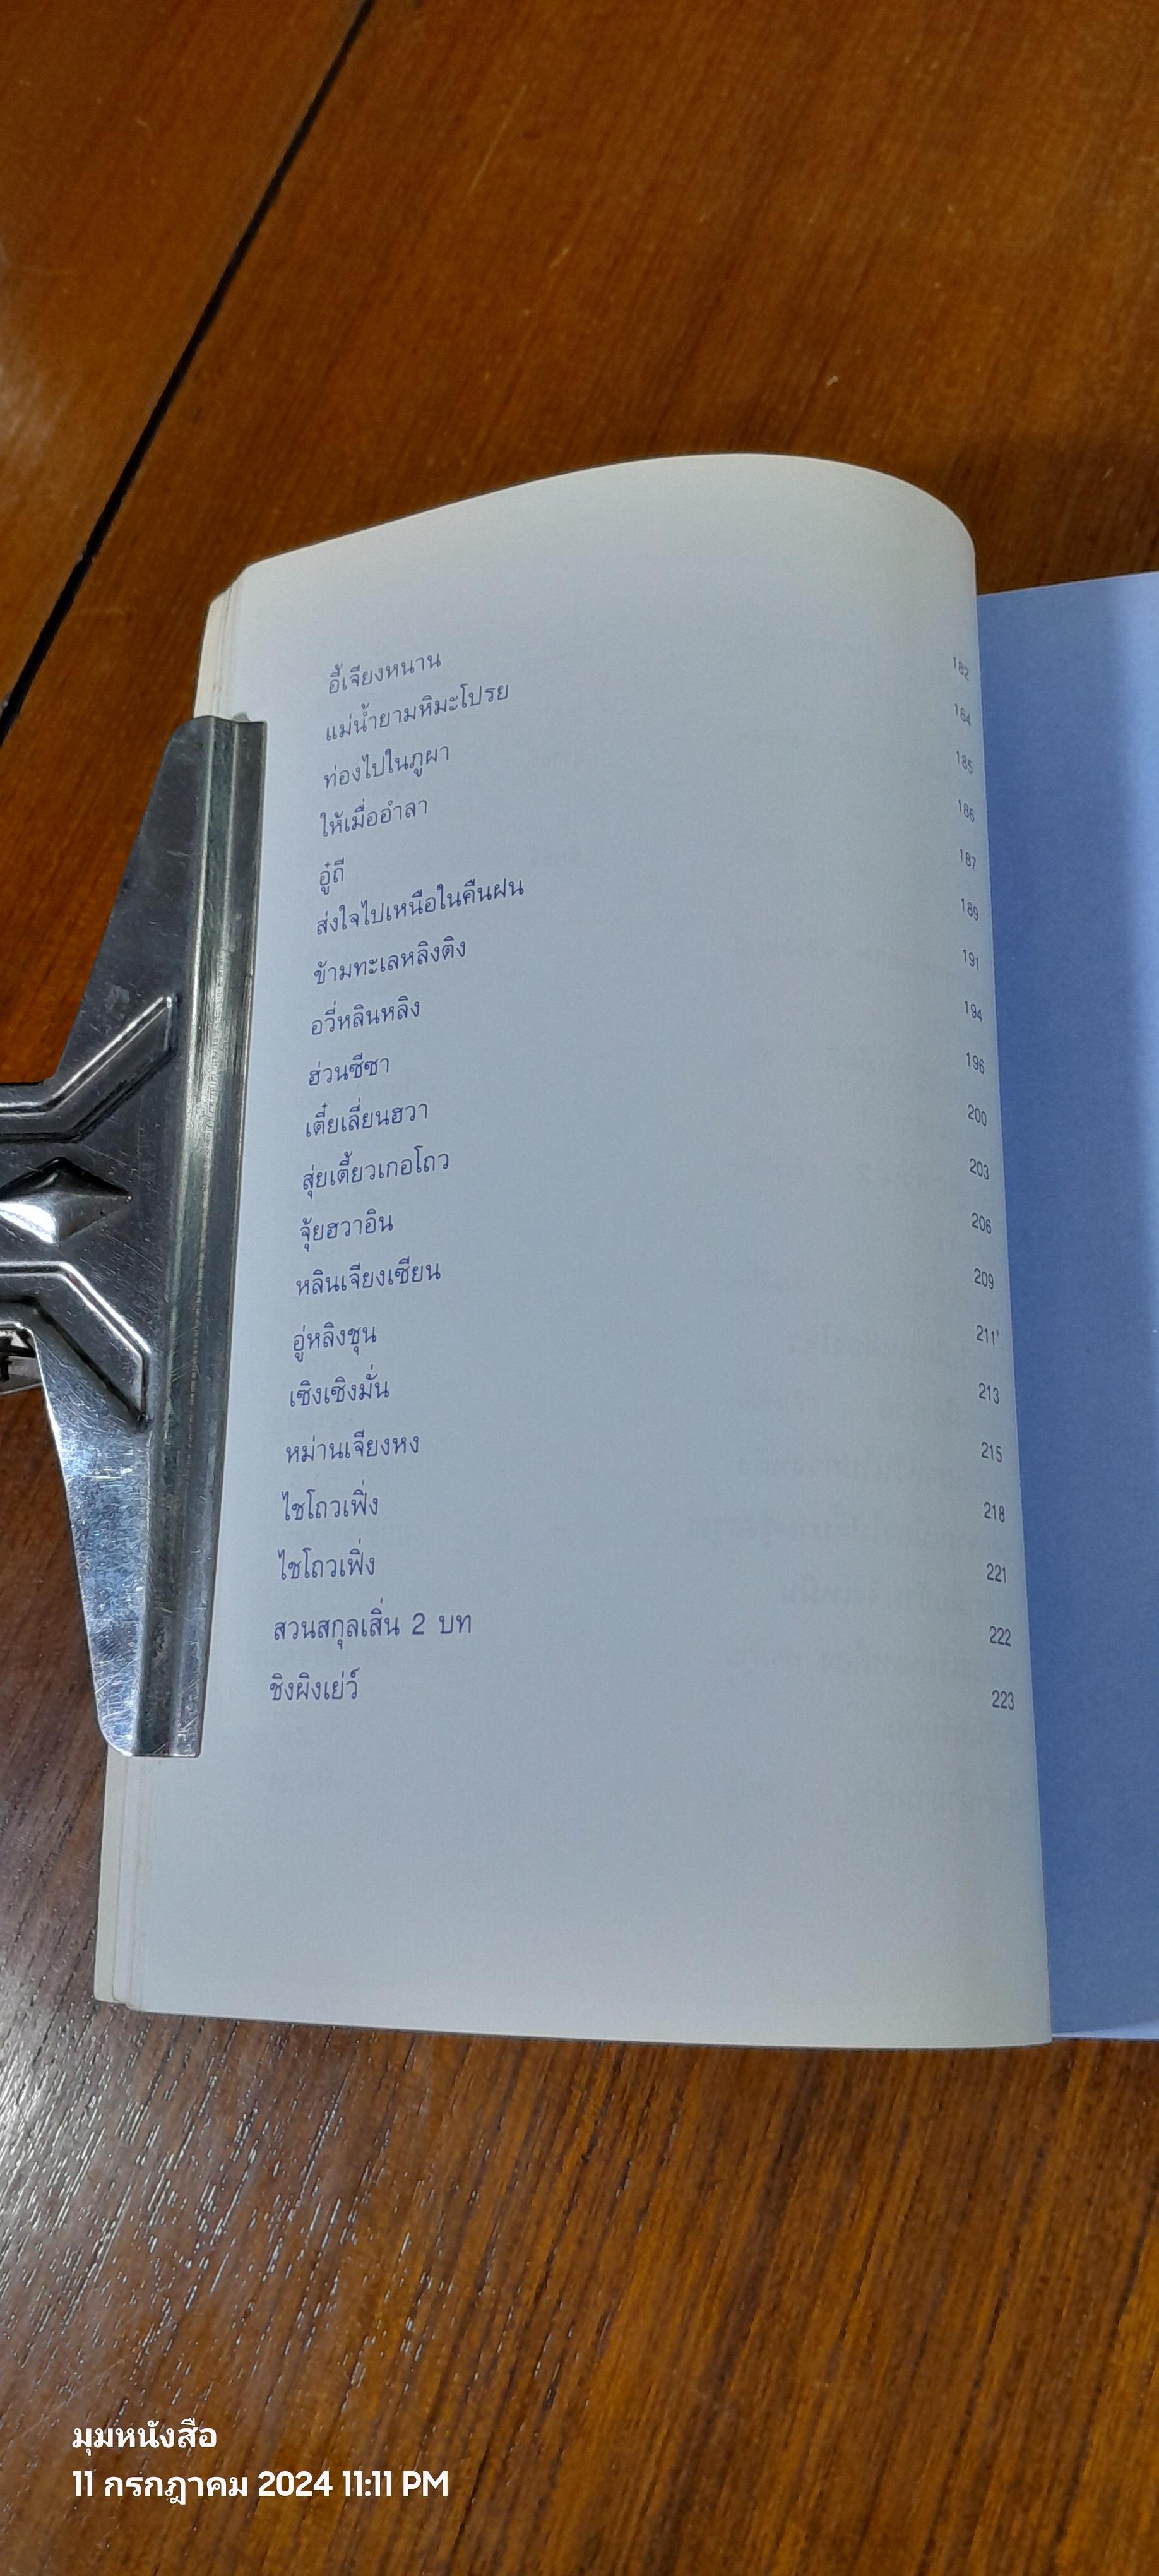 อี้เจียงหนาน 182
แม่น้ำยามหิมะโปรย 184
ท่องไปในภูผา 185
ให้เมื่ออำลา 186
อู๋ถี 187
ส่งใจไปเหนือในคืนฝน 189
ข้ามทะเลหลิงติง 191
อวี่หลินหลิง 194
ฮ่วนซีซา 196
เตี๋ยเลี่ยนฮวา 200
สุ่ยเตี้ยวเกอโถว 203
จุ้ยฮวาอิน 206
หลินเจียงเซียน 209
อู่หลิงชุน 211
เซิงเซิงมั่น 213
หม่านเจียงหง 215
ไชโถวเฟิ่ง 218
ไชโถวเฟิ่ง 221
สวนสกุลเสิ่น 2 บท 222
ชิงผิงเย่ว์ 223
มุมหนังสือ
11 กรกฎาคม 2024 11:11 PM